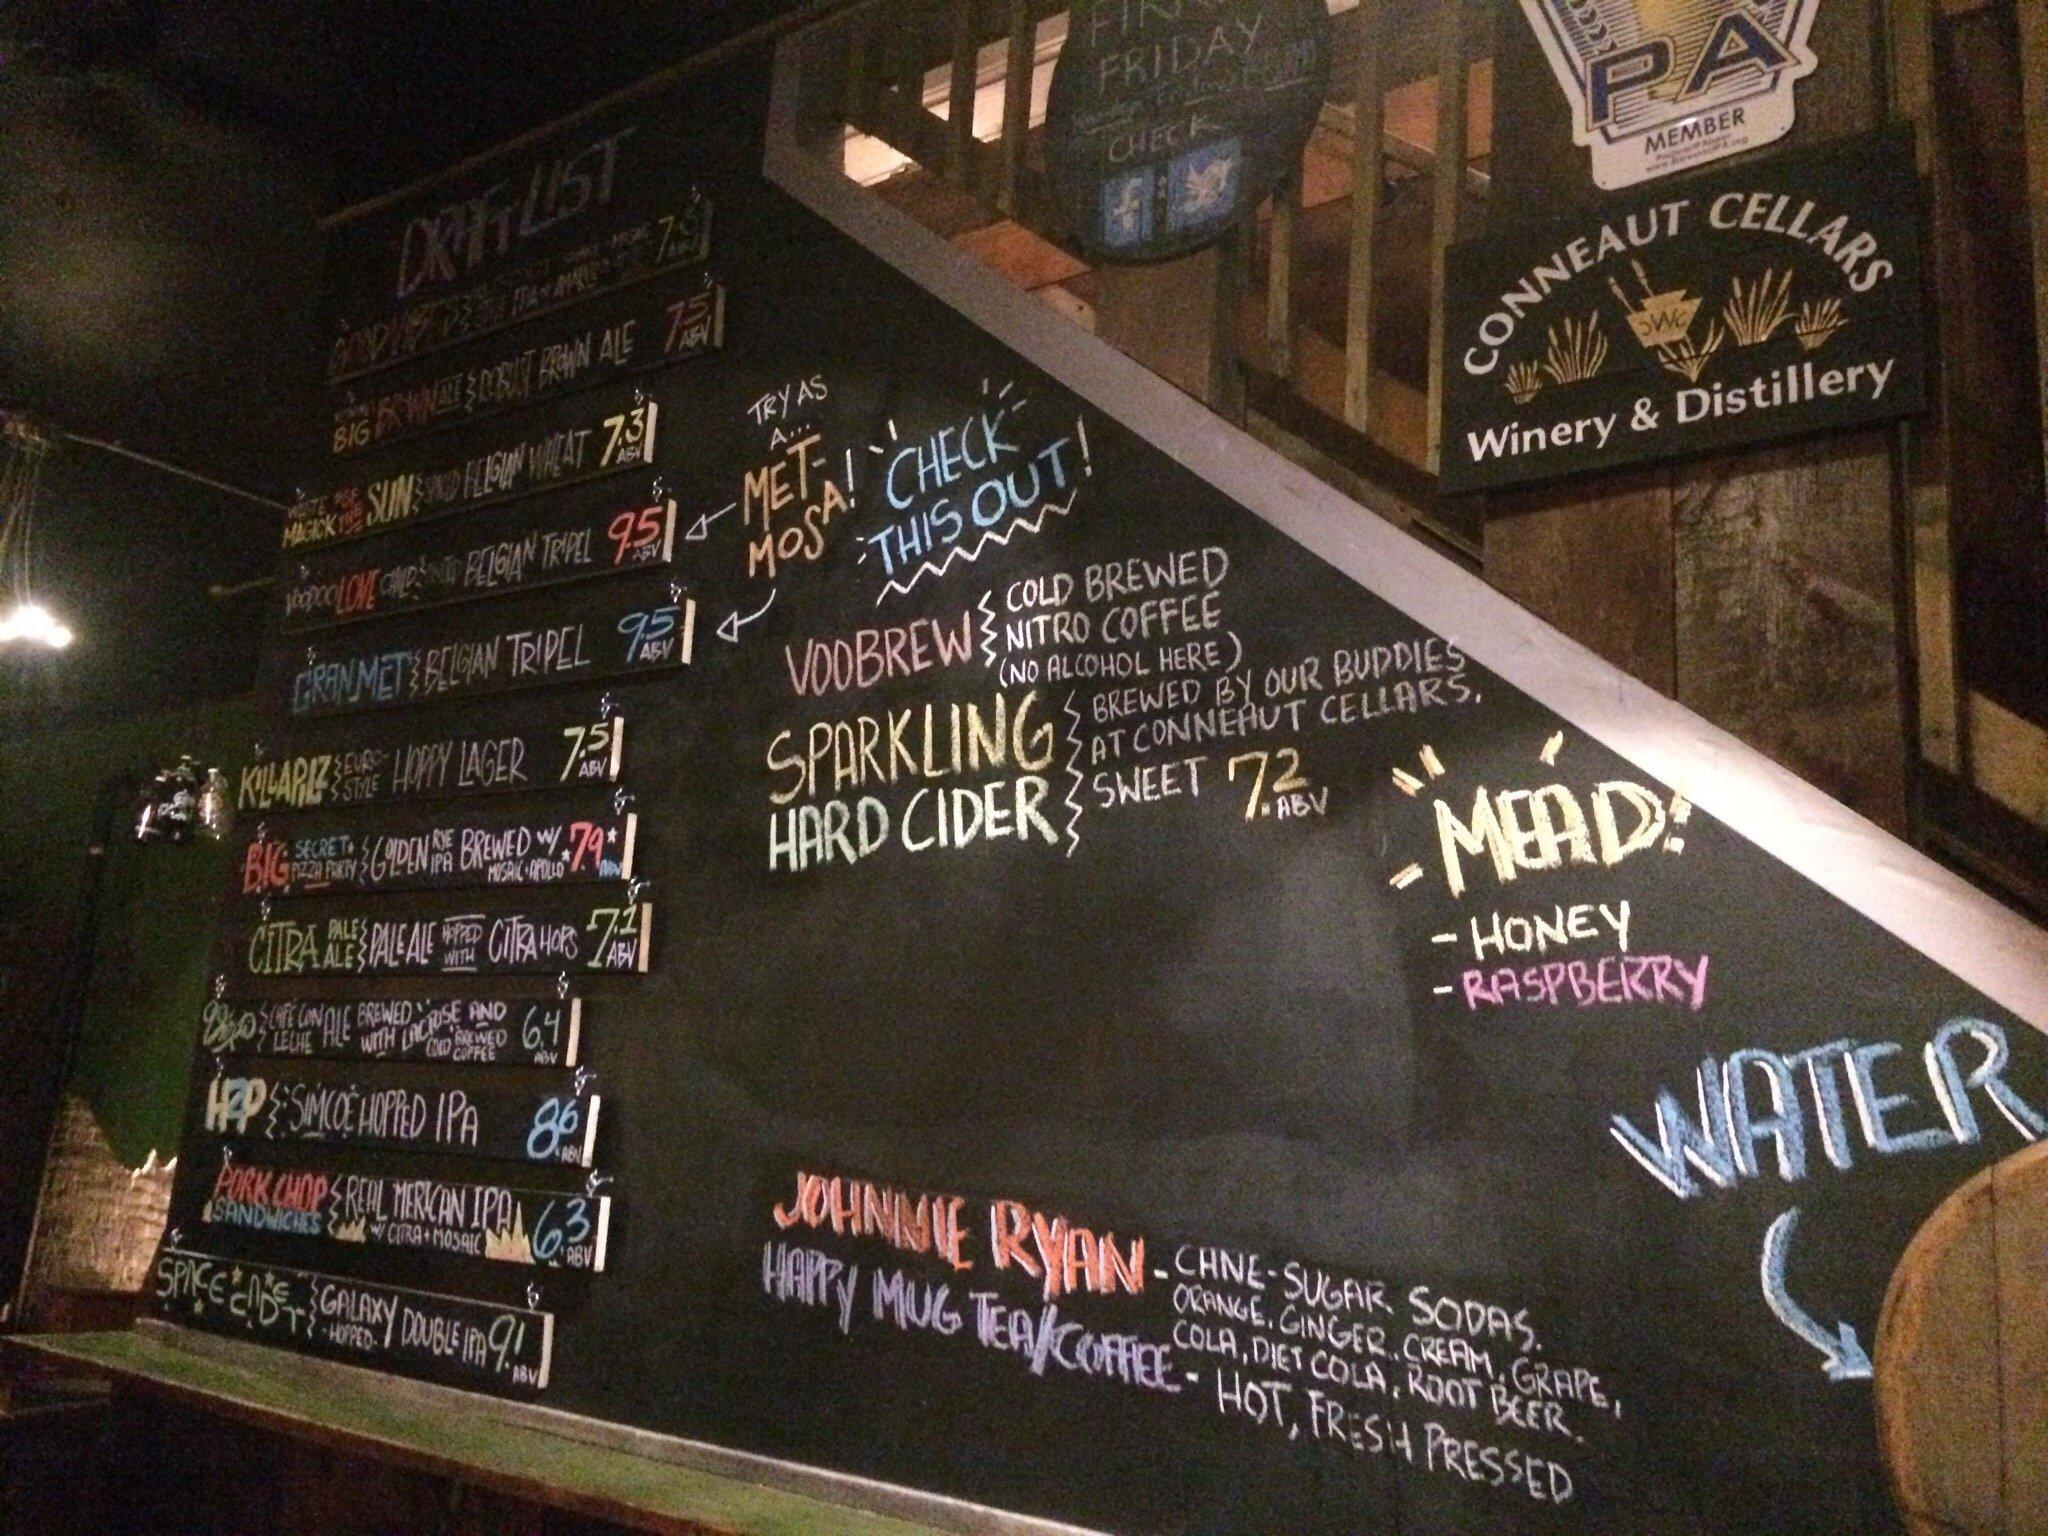 DRAFT LIST
GOOD VIBES
7.3 ABV
BIG BROWN ALE ROBUST BROWN ALE 7.5 ABV
WHITE MAGICK OF THE SUN SPICED BELGIAN WHEAT 7.3 ABV
VOODOO LOVE CHILD BELGIAN TRIPEL 9.5 ABV
GRAN MET BELGIAN TRIPEL 9.5 ABV
KILLAPILZ EURO-STYLE HOPPY LAGER 7.5 ABV
BIG SECRET PIZZA PARTY GOLDEN RYE IPA BREWED W/ MOSAIC + APOLLO *7.9* ABV
CITRA PALE ALE PALE ALE HOPPED WITH CITRA HOPS 7.1 ABV
CAFÉ CON LECHE ALE BREWED WITH LACTOSE AND COLD BREWED COFFEE 6.4 ABV
SIMCOE HOPPED IPA 8.6 ABV
PORK CHOP SANDWICHES REAL MERICAN IPA W/ CITRA + MOSAIC 6.3 ABV
SPACE CADET GALAXY -HOPPED- DOUBLE IPA 9.1 ABV
TRY AS
A...
MET-
MOSA!
CHECK
THIS OUT!
VOOBREW
COLD BREWED
NITRO COFFEE
(NO ALCOHOL HERE)
SPARKLING
HARD CIDER
BREWED BY OUR BUDDIES
AT CONNEAUT CELLARS.
SWEET 7.2 ABV
MEAD!
- HONEY
- RASPBERRY
WATER
JOHNNIE RYAN - CANE-SUGAR SODAS.
ORANGE, GINGER, CREAM, GRAPE,
COLA, DIET COLA, ROOT BEER.
HAPPY MUG TEA/COFFEE - HOT, FRESH PRESSED
FRIDAY
CHECK
f
PA
MEMBER
CONNEAUT CELLARS
SWC
Winery & Distillery